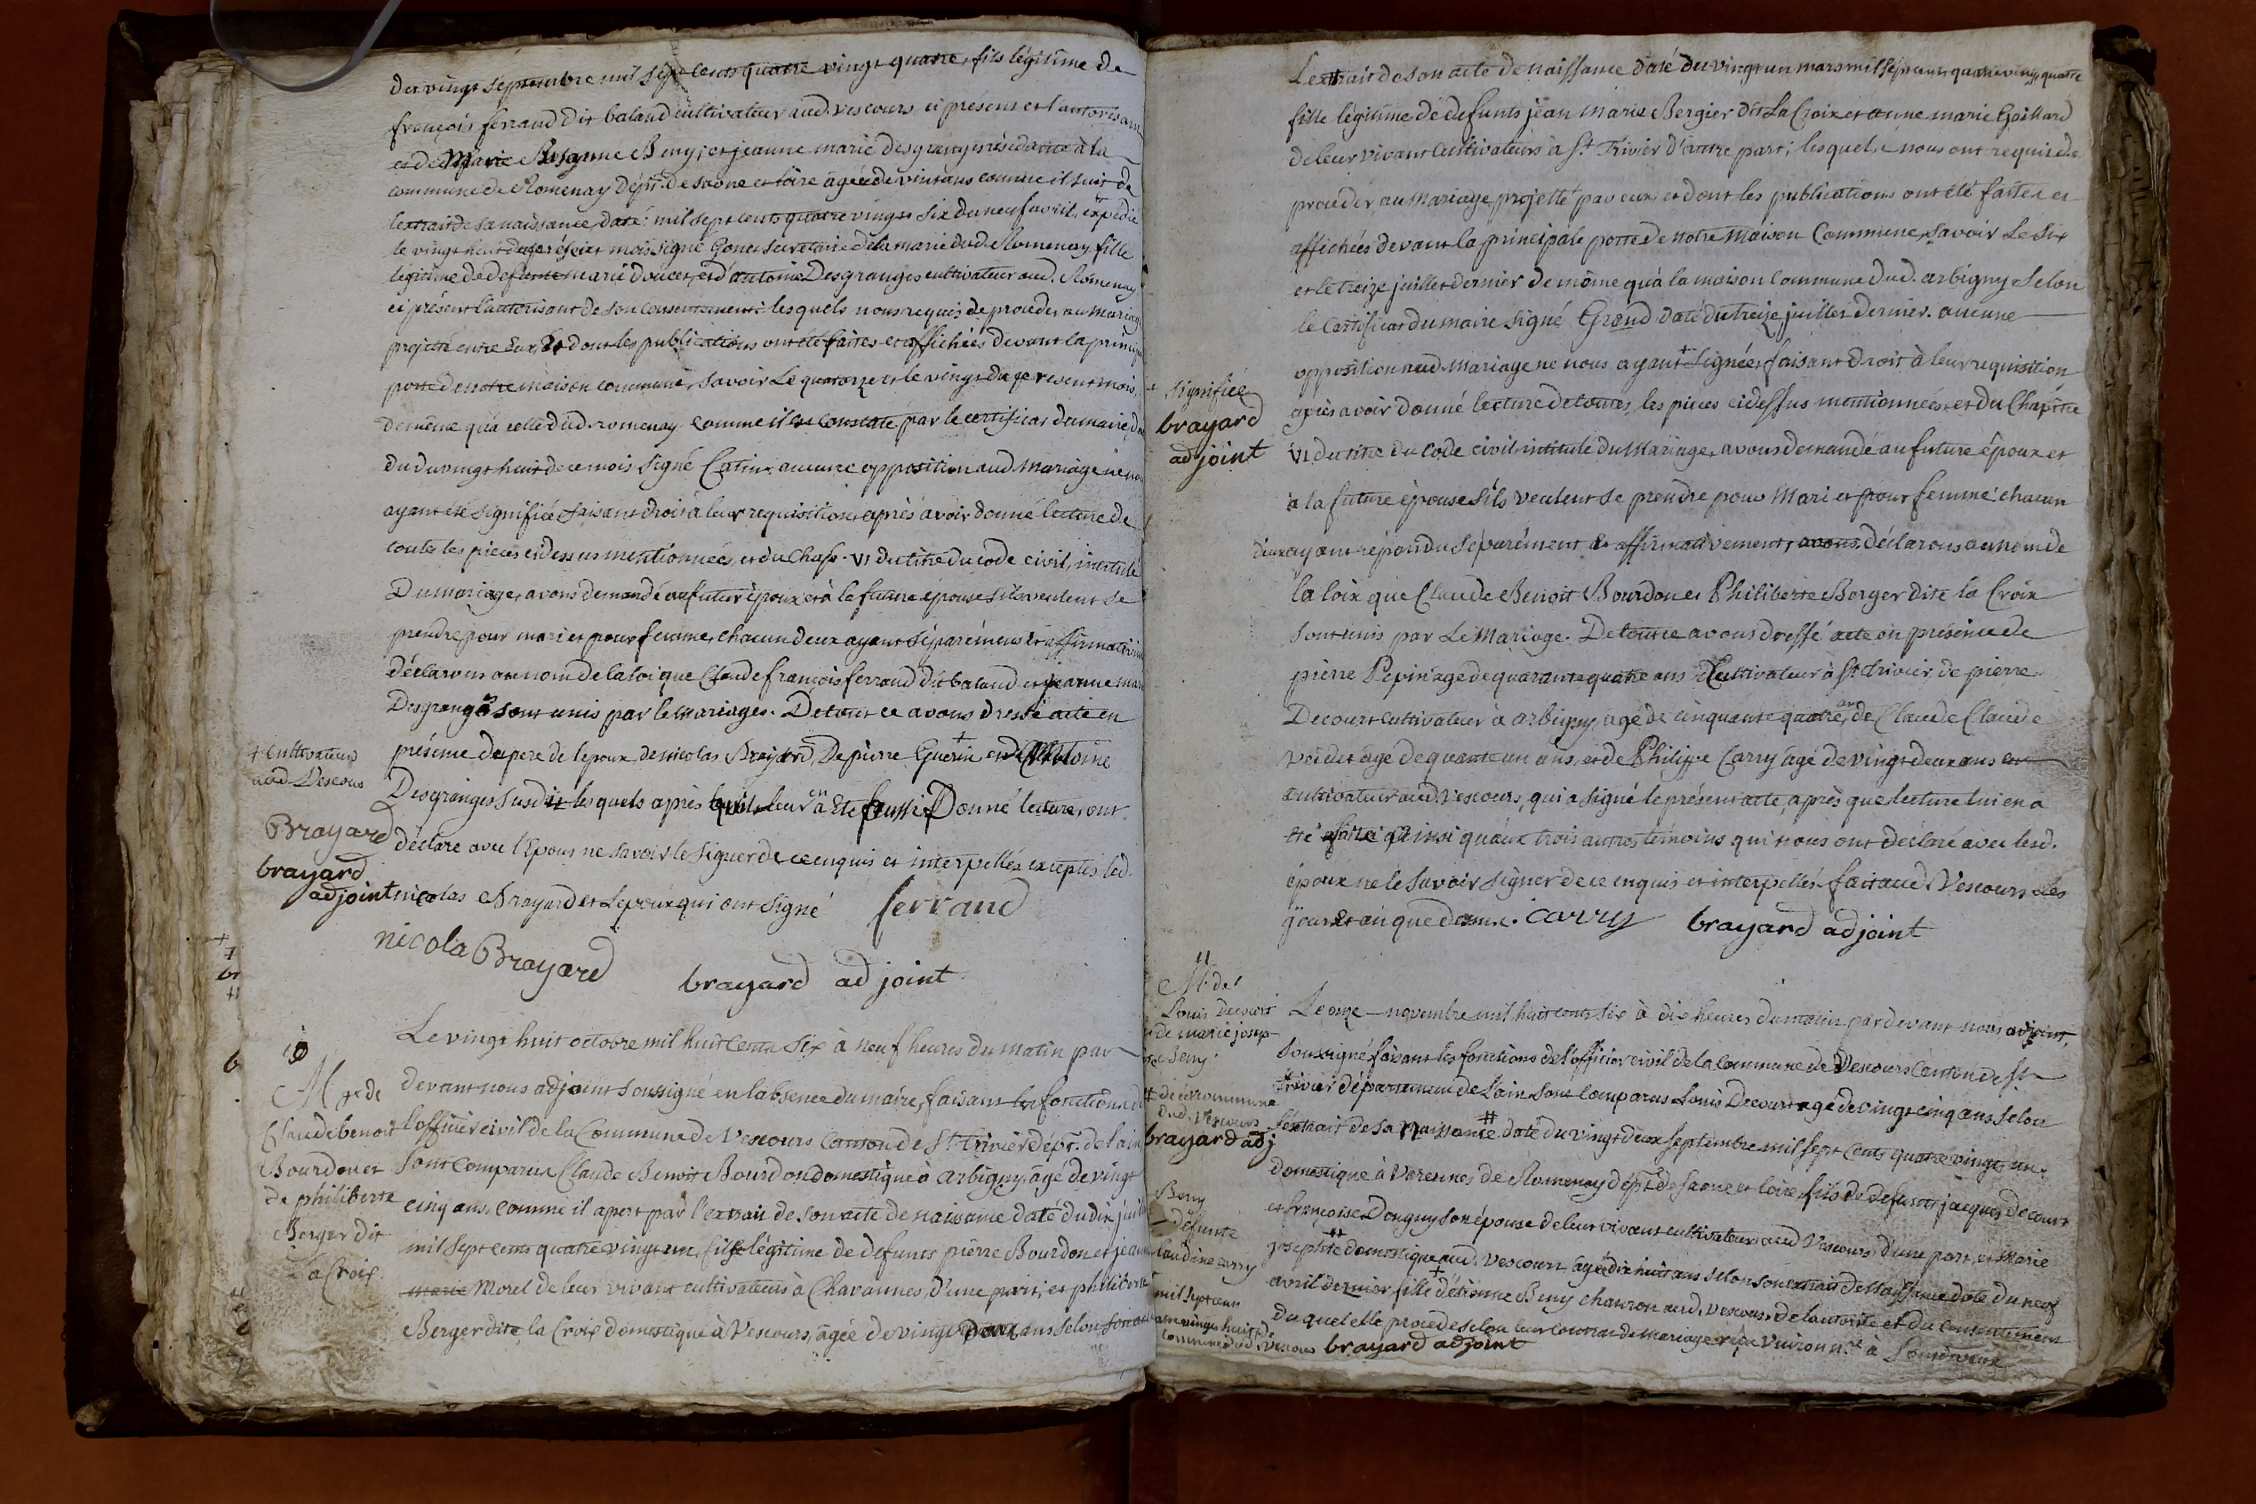 du vingt septembre mil sept cents quatre vingt quatre, fils légitime de
françois ferrand dit baland cultivateur aud. vescours ci present et l'autorisant
et de Marie Susanne Beny; et jeanne marie desgranges résidante à la
commune de Romenay dépt. de saone et loire âgée de vint ans comme il suit de
lextrait de sa naissance daté: mil sept cents quatre vingts six du neuf avril, expédié
le vingt huit du présent mois signé secretaire de la mairie dud. Romenay fille
legitime de defunte marie doucet, et d'antoine Desgranges cultivateur aud. Romenay
ci présent l'autorisant de son consentement: lesquels nous requis de proceder au mariage
projetté entre Eux, Et dont les publications ont été faites et affichées devant la principale
porte de notre maison commune, savoir Le quatorze et le vingt du present mois,
de même qu'a celle dud. romenay comme il est constaté par le certificat du maire
du du vingt huit de ce mois signé Catin, aucune opposition aud. mariage ne nous
ayant été signifiée faisant droit à leur requisition après avoir donné lecture de
toutes les pieces cidessus mentionnées, et du Chap. VI du titre du code civil, intitulé
Du mariage, avons demandé au futur époux et à la future épouse s'ils veulent se
prendre pour mari et pour femme, chacun deux ayant séparément et affirmativement
déclarons au nom de la loi que Claude françois ferrand dit baland et jeanne marie
Desgranges sont unis par le mariage. De tout ce avons dressé acte en
présence du pere de lepoux, de nicolas Brayard, De pierre Guerin + et d'Antoine
Desgranges susdit lesquels après qu'il leur en a Eté aussi Donné lecture, ont
déclaré avec l'Epouse ne savoir le signer de ce enquis et interpellés exceptés led.
nicolas Brayard et lepoux qui ont signé ferrand
+ cultivateur
aud. Vescours
Brayard
brayard
adjoint
nicola Brayard
brayard adjoint
10
M ge de
Claude benoit
Bourdon et
de philiberte
Berger dit
la Croix
Le vingt huit octobre mil huit Cents Six à neuf heures du matin par
devant nous adjoint soussigné en l'absence du maire, faisant les fonctions de
l'officier civil de la Commune de Vescours Canton de St. Trivier dépt. de l'ain
sont comparus Claude Benoit Bourdon domestique à Arbigny, âgé de vingt
cinq ans, comme il apert par l'extrait de son acte de naissance daté du dix
mil sept cents quatre vingt un, fils légitime de defunts pierre Bourdon et jeanne
marie Morel de leur vivant cultivateurs à Chavannes, d'une part; et philiberte
Berger dite la Croix domestique à Vescours, âgée de vingt deux ans selon
Lextrait de son acte de naissance daté du vingt un mars mil sept cents quatre vingt quatre
fille légitime de defunts jean Marie Bergier dit La Croix et anne marie Gaillard
de leur vivant Cultivateurs à St. Trivier d'autre part; lesquels nous ont requis de
proceder au Mariage projetté par eux et dont les publications ont été faites et
affichées devant la principale porte de notre maison Commune, savoir Le Six
et le treize juillet dernier de même qu'à la maison Commune dud. arbigny Selon
le Certificat du maire signé Grand daté du treize juillet dernier. aucune
opposition aud. mariage ne nous ayant + signée, faisant droit à leur requisition
après avoir donné lecture de toutes les pieces cidessus mentionnées et du Chapitre
VI. du titre du Code civil intitulé du Mariage, avons demandé au future époux et
à la future épouse s'ils veulent se prendre pour Mari et pour femme, chacun
deux ayant répondu Séparément et affirmativement, avons déclarons au nom de
la loix que Claude Benoit Bourdon et Philiberte Berger dite la Croix
sont unis par Le Mariage. De tout ce avons dressé acte en présence de
pierre Pepin agé de quarante quatre ans Cultivateur à St. trivier, de pierre
Decourt cultivateur à Arbigny, agé de cinquante quatre ans, de Claude Claude
agé de quarante un ans, et de Philippe Carry âgé de vingt deux ans
cultivateur aud. Vescours, qui a signé le présent acte, après que lecture lui en a
été faite ainsi qu'aux trois autres témoins qui nous ont déclaré avec lesd.
époux ne le savoir signer de ce enquis et interpellés. fait aud. Vescours Les
jour et an que dessus. Carry brayard adjoint
+ signifiée
brayard
adjoint
11
M. de
Louis Decourt
& de marie josep
te Beny
Le onze novembre mil huit cents six à dix heures du matin pardevant nous adjoint,
soussigné faisant les fonctions de l'officier civil de la Commune de Vescours Canton de St.
trivier departement de l'ain sont comparus Louis Decourt agé de vingt cinq ans selon
l'extrait de sa Naissance # daté du vingt deux septembre mil sept cents quatre vingt un
domestique à Varennes de Romenay dépt. de saone et loire, fils de defunts jacques decourt
et françoise Donguy son épouse de leur vivant cultivateurs aud. Vescours, d'une part, et Marie
josephte domestique aud. Vescours, agée dix huit ans selon son extrait de Naissance daté du neuf
avril dernier fille d'étienne Beny charron aud. vescours, de l'autorité et du consentement
du quel elle procede selon leur contrat de mariage reçu Vuiron nre. à
# de la commune
dud. Vescours
brayard adj
Beny
defunte
Claudine Carry
mil sept cent
quatre vingt huit de
commune dud. Vescours brayard adjoint